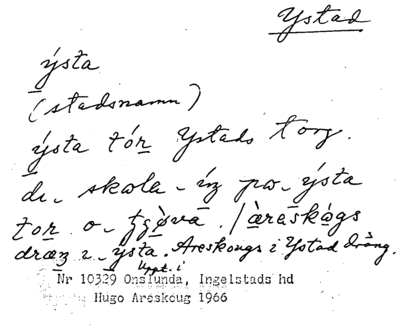 Ystad
ýsta
(stadsnamn)
ýsta tór Ystads torg.
de skola iz po ýsta
tor o. /àreskågs
dræz i ýsta. Areskougs i Ystad dräng.
Uppt. i
Nr 10329 Onslunda, Ingelstads hd
Hugo Areskoug 1966